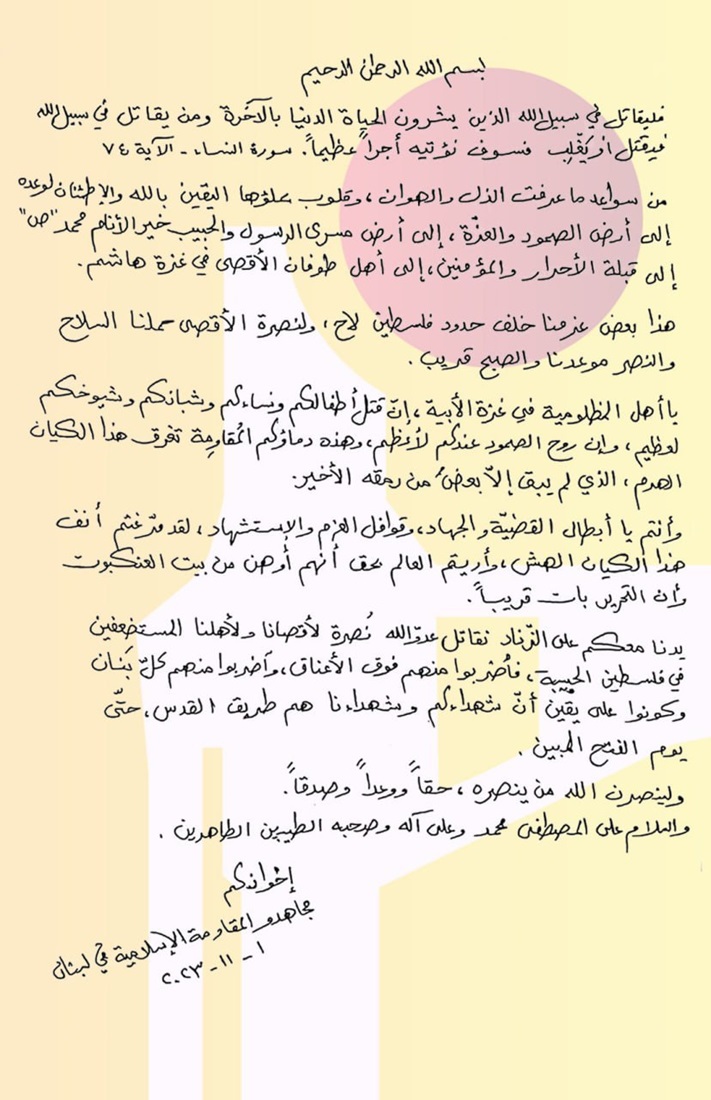 بسم الله الرحمن الرحيم
فليقاتل في سبيل الله الذين يشرون الحياة الدنيا بالآخرة ومن يقاتل في سبيل الله
فيقتل أو يَغْلِب فسوف نؤتيه أجراً عظيماً. سورة النساء - الآية ٧٤
من سواعد ما عرفت الذل والهوان، وقلوب يملؤها اليقين بالله والإطمئنان لوعده
إلى أرض الصمود والعزّة، إلى أرض مسرى الرسول والحبيب خير الأنام محمد "ص"
إلى قبلة الأحرار والمؤمنين، إلى أهل طوفان الأقصى في غزة هاشم.
هذا بعض عزمنا خلف حدود فلسطين لاح، ولنصرة الأقصى حملنا السلاح
والنصر موعدنا والصبح قريب.
يا أهل المظلومية في غزة الأبية، إنّ قتل أطفالكم ونساءكم وشبانكم وشيوخكم
لعظيم، وإن روح الصمود عندكم لأعظم، وهذه دماؤكم المُقاوِمة تغرق هذا الكيان
الهرم، الذي لم يبق إلّا بعضٌ من رمقه الأخير.
وأنتم يا أبطال القضيّة والجهاد، وقوافل العزم والإستشهاد، لقد مرّغتم أنف
هذا الكيان الهش، وأريتم العالم بحق أنهم أوهن من بيت العنكبوت
وأن التحرير بات قريباً.
يدنا معكم على الزّناد نقاتل عدوّ الله نُصرة لأقصانا ولأهلنا المستضعفين
في فلسطين الحبيبة، فأضربوا منهم فوق الأعناق، وأضربوا منهم كلّ بَنان
وكونوا على يقين أنّ شهداءكم وشهداءنا هم طريق القدس، حتّى
يوم الفتح المبين.
ولينصرن الله من ينصره، حقاً ووعداً وصدقاً.
والسلام على المصطفى محمد وعلى آله وصحبه الطيبين الطاهرين.
إخوانكم
مجاهدو المقاومة الإسلامية في لبنان
١ - ١١ - ٢٠٢٣